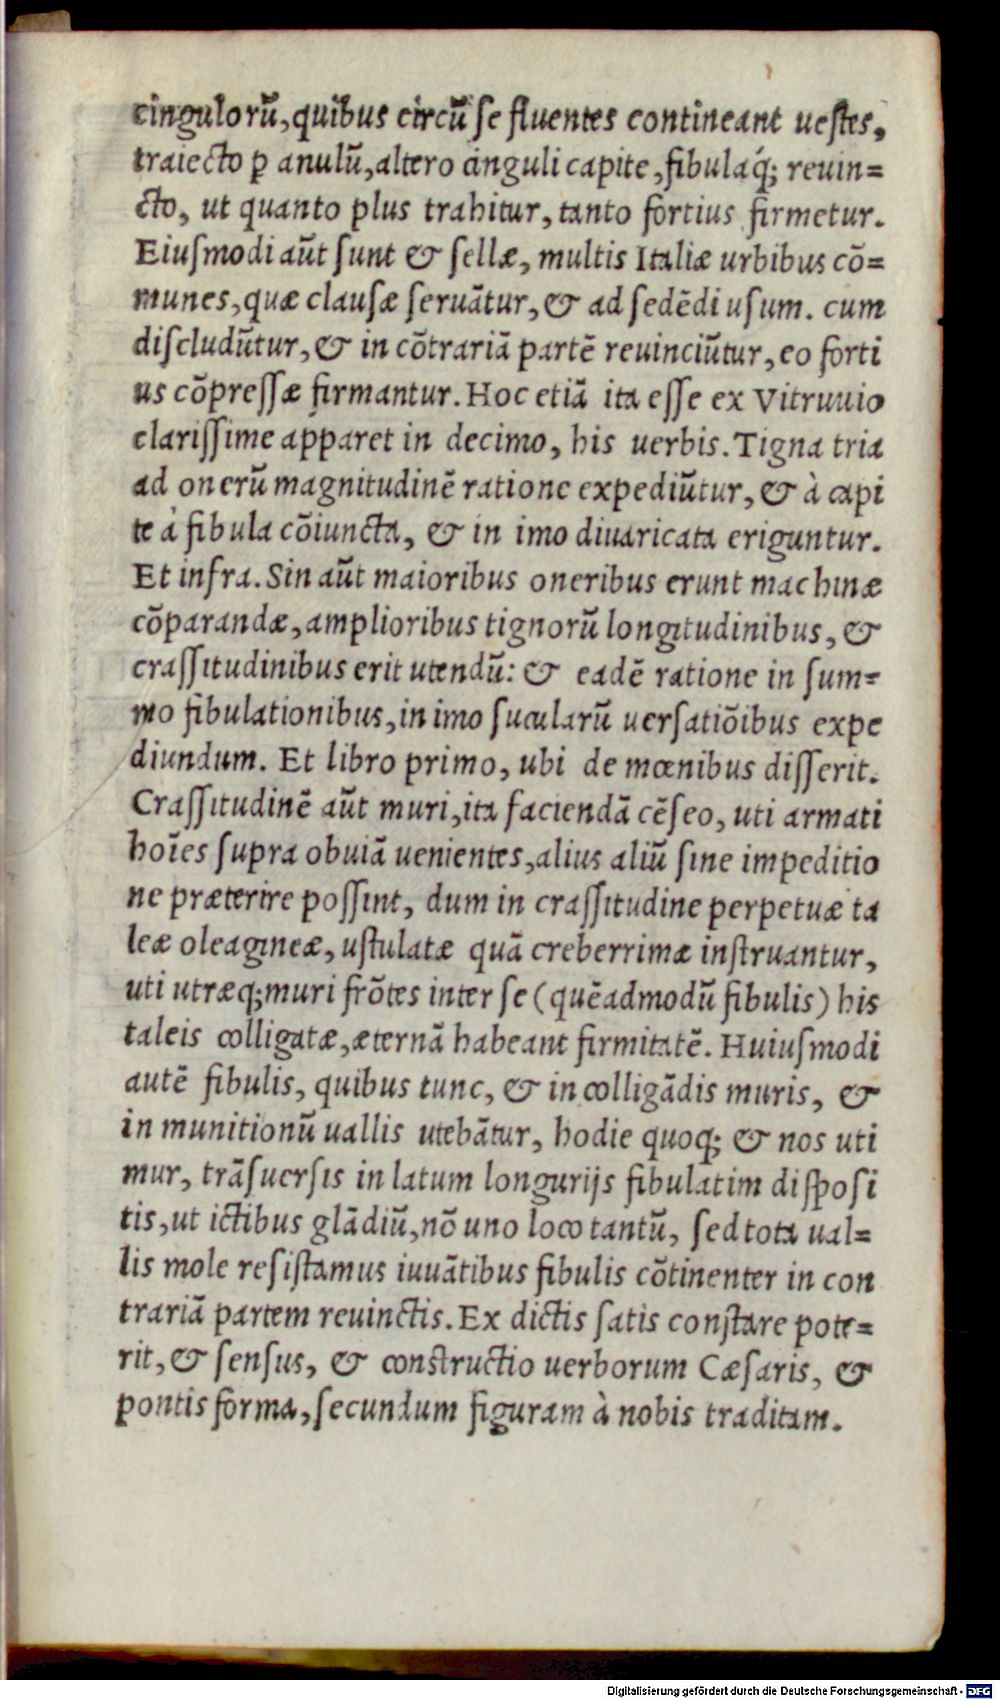 cingulorū, quibus circū se fluentes contineant uestes,
traiecto ꝑ anulū, altero cinguli capite, fibulaq́; reuin=
cto, ut quanto plus trahitur, tanto fortius firmetur.
Eiusmodi aūt sunt & sellæ, multis Italiæ urbibus cō=
munes, quæ clausæ seruātur, & ad sedēdi usum. cum
discludūtur, & in cōtrariā partē reuinciūtur, eo forti
us cōpressæ firmantur. Hoc etiā ita esse ex Vitruuio
clarissime apparet in decimo, his uerbis. Tigna tria
ad onerū magnitudinē ratione expediūtur, & à capi
te à fibula cōiuncta, & in imo diuaricata eriguntur.
Et infra. Sin aūt maioribus oneribus erunt machinæ
cōparandæ, amplioribus tignorū longitudinibus, &
crassitudinibus erit utendū: & eadē ratione in sum=
mo fibulationibus, in imo sucularū uersatiōibus expe
diundum. Et libro primo, ubi de mœnibus disserit.
Crassitudinē aūt muri, ita faciendā cēseo, uti armati
hoīes supra obuiā uenientes, alius aliū sine impeditio
ne præterire possint, dum in crassitudine perpetuæ ta
leæ oleagineæ, ustulatæ quā creberrimæ instruantur,
uti utræq; muri frōtes inter se (quēadmodū fibulis) his
taleis colligatæ, æternā habeant firmitatē. Huiusmodi
autē fibulis, quibus tunc, & in colligādis muris, &
in munitionū uallis utebātur, hodie quoq; & nos uti
mur, trāsuersis in latum longurijs fibulatim disposi
tis, ut ictibus glādiū, nō uno loco tantū, sed tota ual=
lis mole resistamus iuuātibus fibulis cōtinenter in con
trariā partem reuinctis. Ex dictis satis constare pote=
rit, & sensus, & constructio uerborum Cæsaris, &
pontis forma, secundum figuram à nobis traditam.
Digitalisierung gefördert durch die Deutsche Forschungsgemeinschaft - DFG